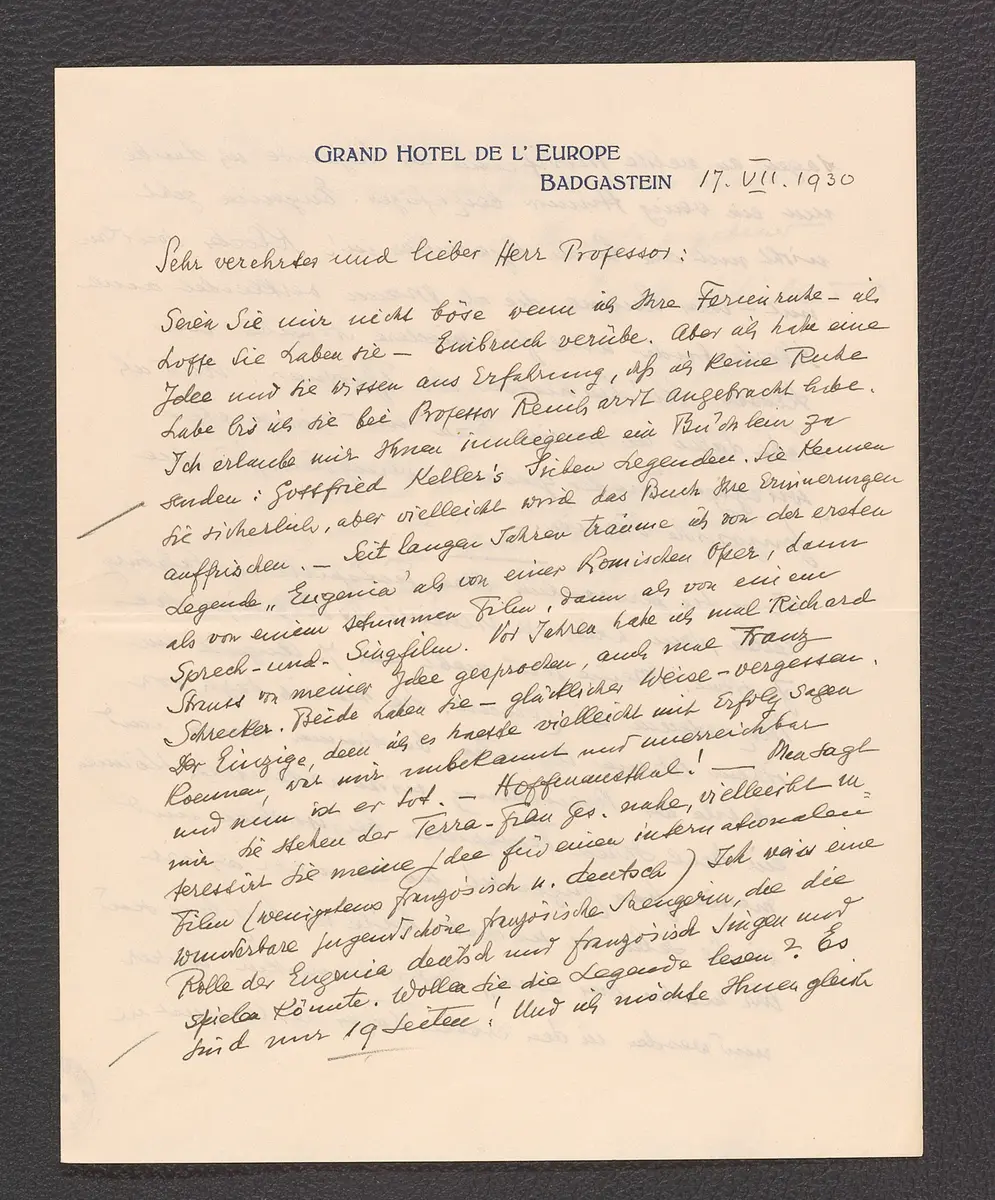 GRAND HOTEL DE L' EUROPE
BADGASTEIN 17. VII. 1930
Sehr verehrter und lieber Herr Professor:
Seien Sie mir nicht böse wenn ich Ihre Ferienruhe – ich
hoffe Sie haben sie – Einbruch verübe. Aber ich habe eine
Idee und Sie wissen aus Erfahrung, dß ich keine Ruhe
habe bis ich sie bei Professor Reinhardt angebracht habe.
Ich erlaube mir Ihnen inliegend ein Büchlein zu
senden: Gottfried Keller's Sieben Legenden. Sie kennen
sie sicherlich, aber vielleicht wird das Buch Ihre Erinnerungen
auffrischen. – Seit langen Jahren träume ich von der ersten
Legende „Eugenia" als von einer Komischen Oper, dann
als von einem stummen Film, dann als von einem
Sprech-und-Singfilm. Vor Jahren habe ich mal Richard
Strauss von meiner Idee gesprochen, auch mal Franz
Schrecker. Beide haben sie – glücklicher Weise – vergessen.
Der Einzige, dem ich es haette vielleicht mit Erfolg sagen
koennen, war mir unbekannt und unerreichbar
und nun ist er tot. – Hoffmansthal! — Man sagt
mir Sie stehen der Terra-Film Ges. nahe, vielleicht in=
teressirt Sie meine Idee für einen internationalen
Film (wenigstens französisch u. deutsch) Ich weiss eine
wunderbare jugendschöne französische Saengerin, die die
Rolle der Eugenia deutsch und französisch singen und
spielen könnte. Wollen Sie die Legende lesen? Es
sind nur 19 Seiten! Und ich möchte Ihnen gleich